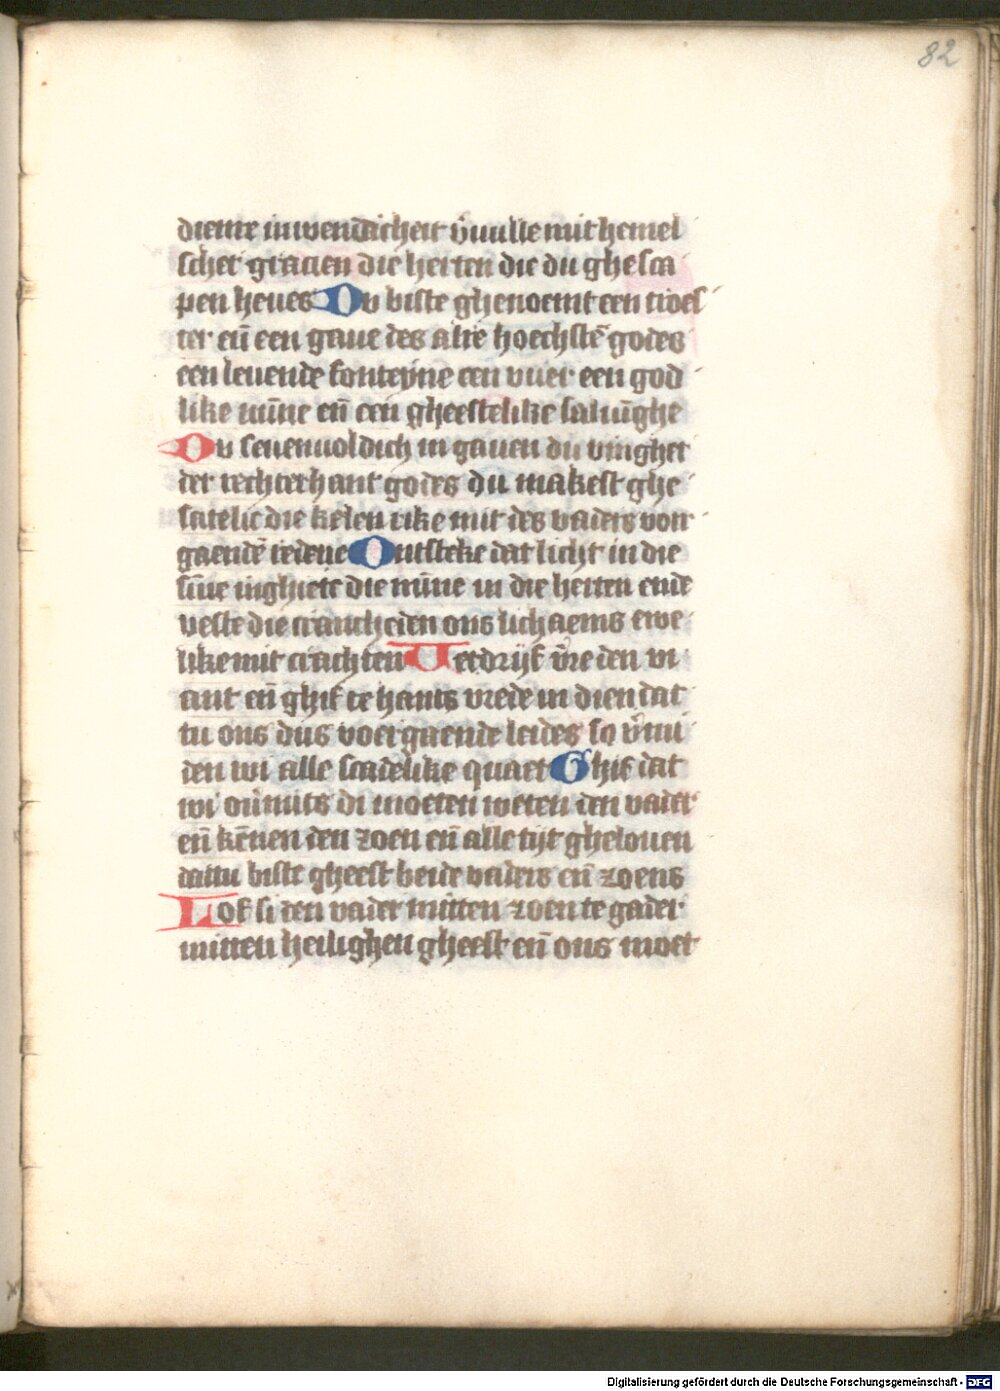 82
dienre inwendicheit v̄uulle mit hemel
scher gracien die herten die du ghesca
pen heues Du biste ghenoemt een troes
ter eñ een gaue des alre hoechstē godes
een leuende fonteyne een vuer een god
like mīne eñ een gheestelike saluinghe
Du seuenuoldich in gauen du vingher
der rechterhant godes du makest ghe
satelic die kelen rike mit des vaders voer
gaendē redene Ontsteke dat licht in die
sīne inghiete die mīne in die herten ende
veste die crancheden ons lichaems ewe
like mit crachten Uerdrijf v̄re den vi
ant eñ ghif te hants vrede in dien dat
tu ons dus voergaende leides so v̄mi
den wi alle scadelike quaet Ghif dat
wi ouermits di moeten weten den vader
eñ kēnen den zoen eñ alle tijt ghelouen
dattu biste gheest beide vaders eñ zoens
Lof si den vader mitten zoen te gader
mitten heilighen gheest eñ ons moet
Digitalisierung gefördert durch die Deutsche Forschungsgemeinschaft - DFG